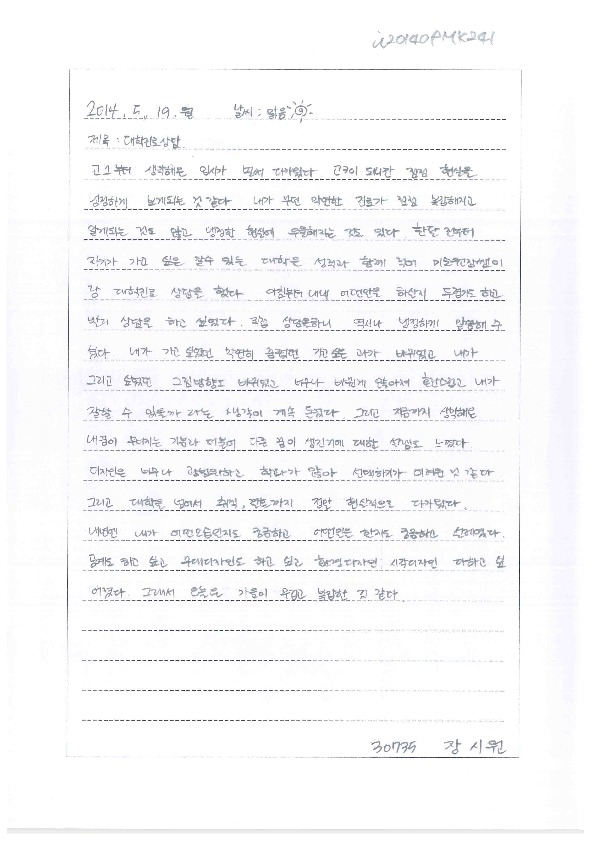 u20140PMK241
2014. 5. 19. 월 날씨 : 맑음
제목 : 대학진로상담
고1부터 생각해온 입시가 벌써 다가왔다 고3이 되니깐 점점 현실을
냉정하게 보게되는 것 같다 내가 무던 막연한 진로가 점점 복잡해지고
알게되는 것도 많고 냉정한 현실에 우울해지는 것도 있다 한달 전부터
자기가 가고 싶은 갈수 있는 대학을 성적과 함께 적어
랑 대학진로 상담을 했다. 아침부터 내내 어떤말을 하실지 두렵기도 하고
빨리 상담을 하고 싶었다. 막상 상담을하니 역시나 냉정하게 말씀해 주
셨다 내가 가고 싶었던 막연히 꿈꿨던 가고 싶은 과가 바뀌었고 내가
그리고 싶었던 그림방향도 바뀌었고 너무나 바뀐게 많아서 혼란스럽고 내가
잘할 수 있을까 라는 생각이 계속 들었다 그리고 지금까지 생각해온
내꿈이 무너지는 기분과 더불어 다른 꿈이 생긴거에 대한 설렘도 느꼈다
디자인은 너무나 광범위하고 학과가 많아 선택하기가 어려운 것 같다
그리고 대학을 넘어서 취직, 진로까지 정말 현실적으로 다가왔다.
내년엔 내가 어떤모습인지도 궁금하고 어떤일을 할지도 궁금하고 설레었다.
공예도 하고 싶고 무대디자인도 하고 싶고 환경디자인, 시각디자인 다하고 싶
어졌다. 그래서 오늘은 마음이 무겁고 복잡한 것 같다.
30735 장시원